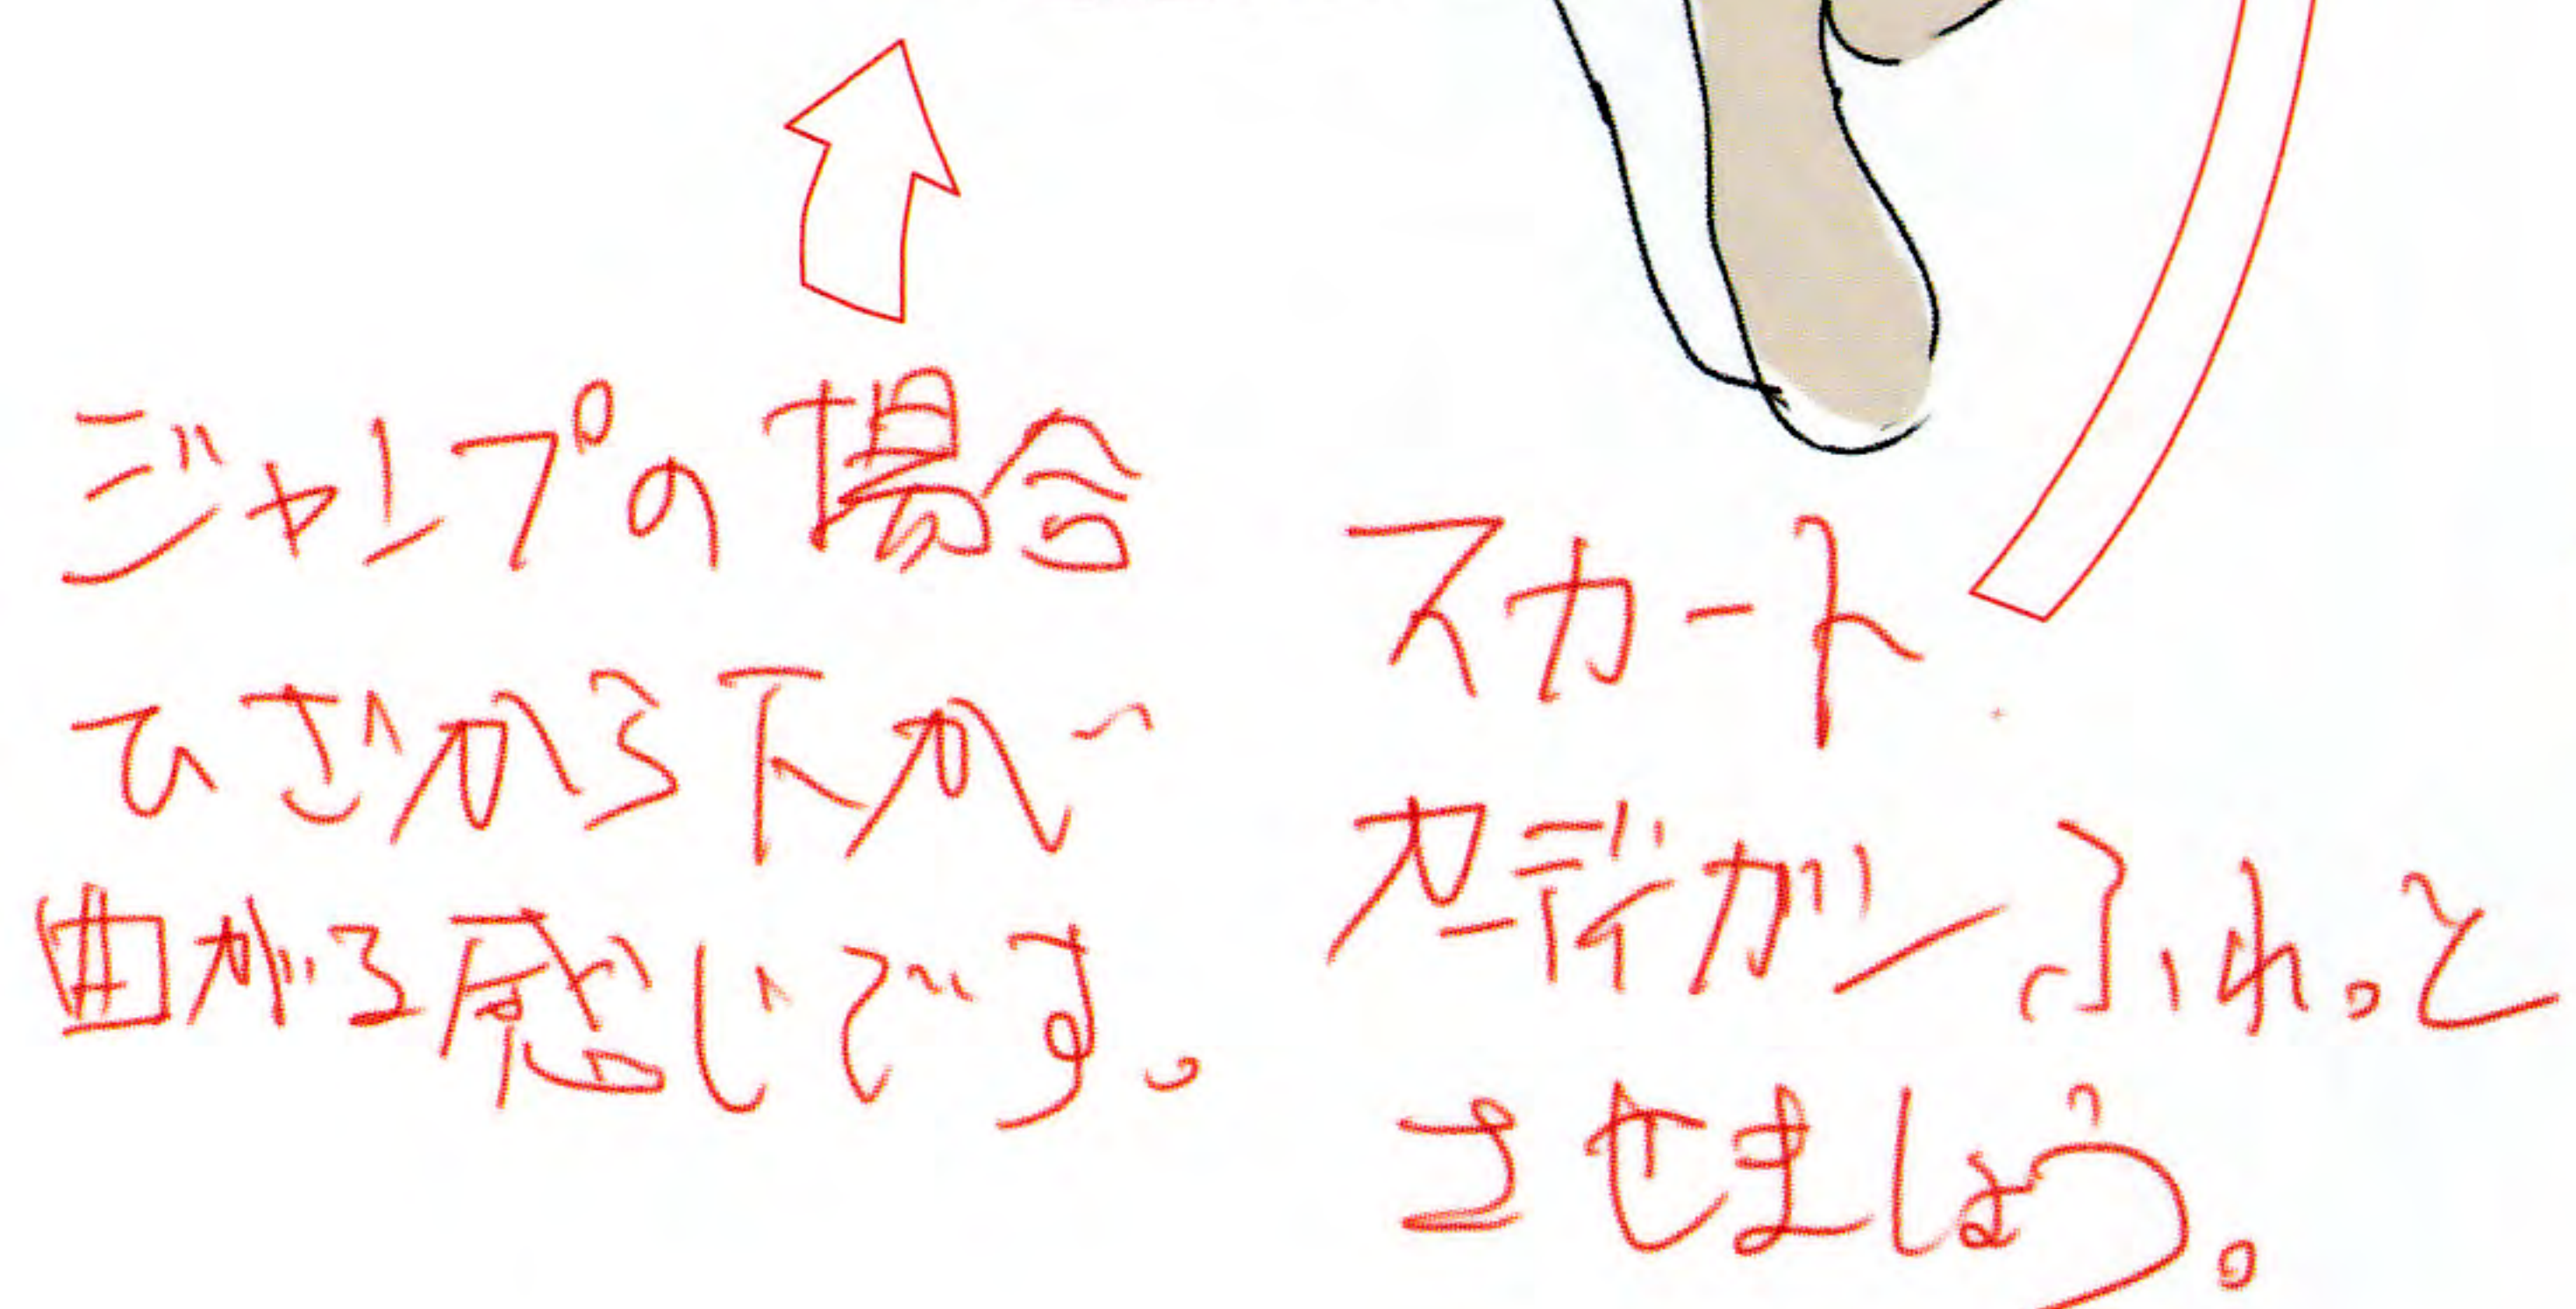 ジャンプの場合
ひざから下が
曲がる感じです。
スカート
カーディガンふわっと
させましょう。